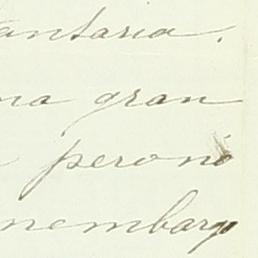 antaria.
na gran
peronó
nembargo